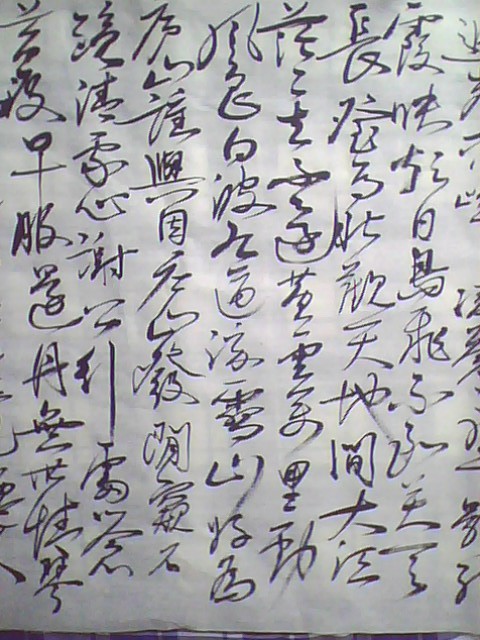 霞映朝日鳥飛不到吳天
長登高壯觀天地間大江
茫茫去不還黃雲萬里動
風色白波九道流雪山好為
廬山謠興因廬山發閒窺石
鏡清我心謝公行處蒼
苔沒早服還丹無世情琴